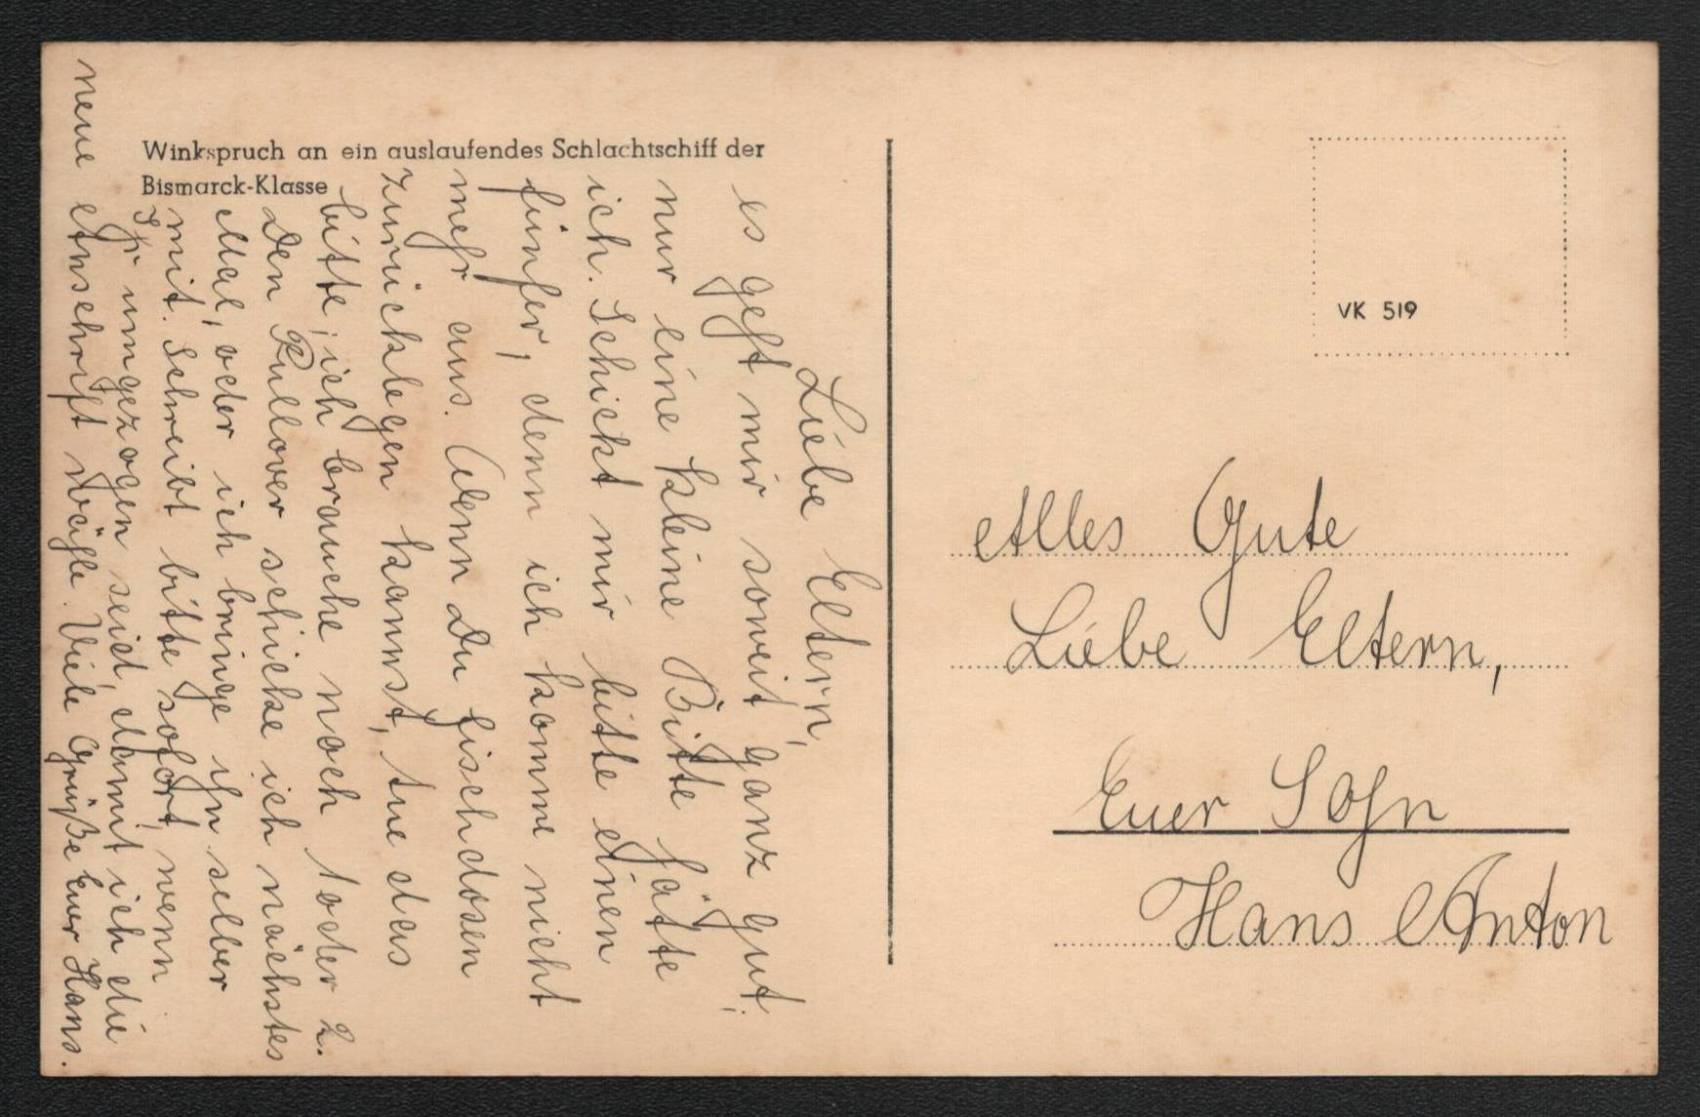 Winkspruch an ein auslaufendes Schlachtschiff der
Bismarck-Klasse
Liebe Eltern,
es geht mir soweit ganz gut,
nur eine kleine Bitte hätte
ich. Schickt mir bitte einen
fünfer, denn ich komme nicht
mehr aus. Wenn Du Fischdosen
zurücklegen kannst, tue das
bitte, ich brauche noch 1 oder 2.
Den Pullover schicke ich nächstes
Mal, oder ich bringe ihn selber
mit. Schreibt bitte sofort, wenn
Ihr umgezogen seid, damit ich die
neue Anschrift weiß. Viele Grüße Euer Hans.
VK 519
Alles Gute
Liebe Eltern,
Euer Sohn
Hans Anton